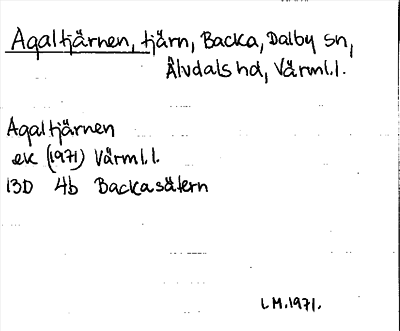 Agaltjärnen, tjärn, Backa, Dalby sn,
Älvdals hd, Värml.l.
Agaltjärnen
ek (1971) Värml.l.
13D 4b Backasätern
LM.1971.